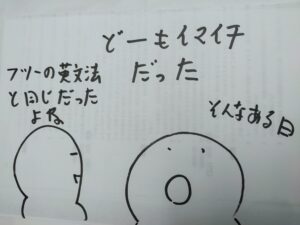 どーもイマイチ
だった
フツーの英文法
と同じだった
よね
そんなある日